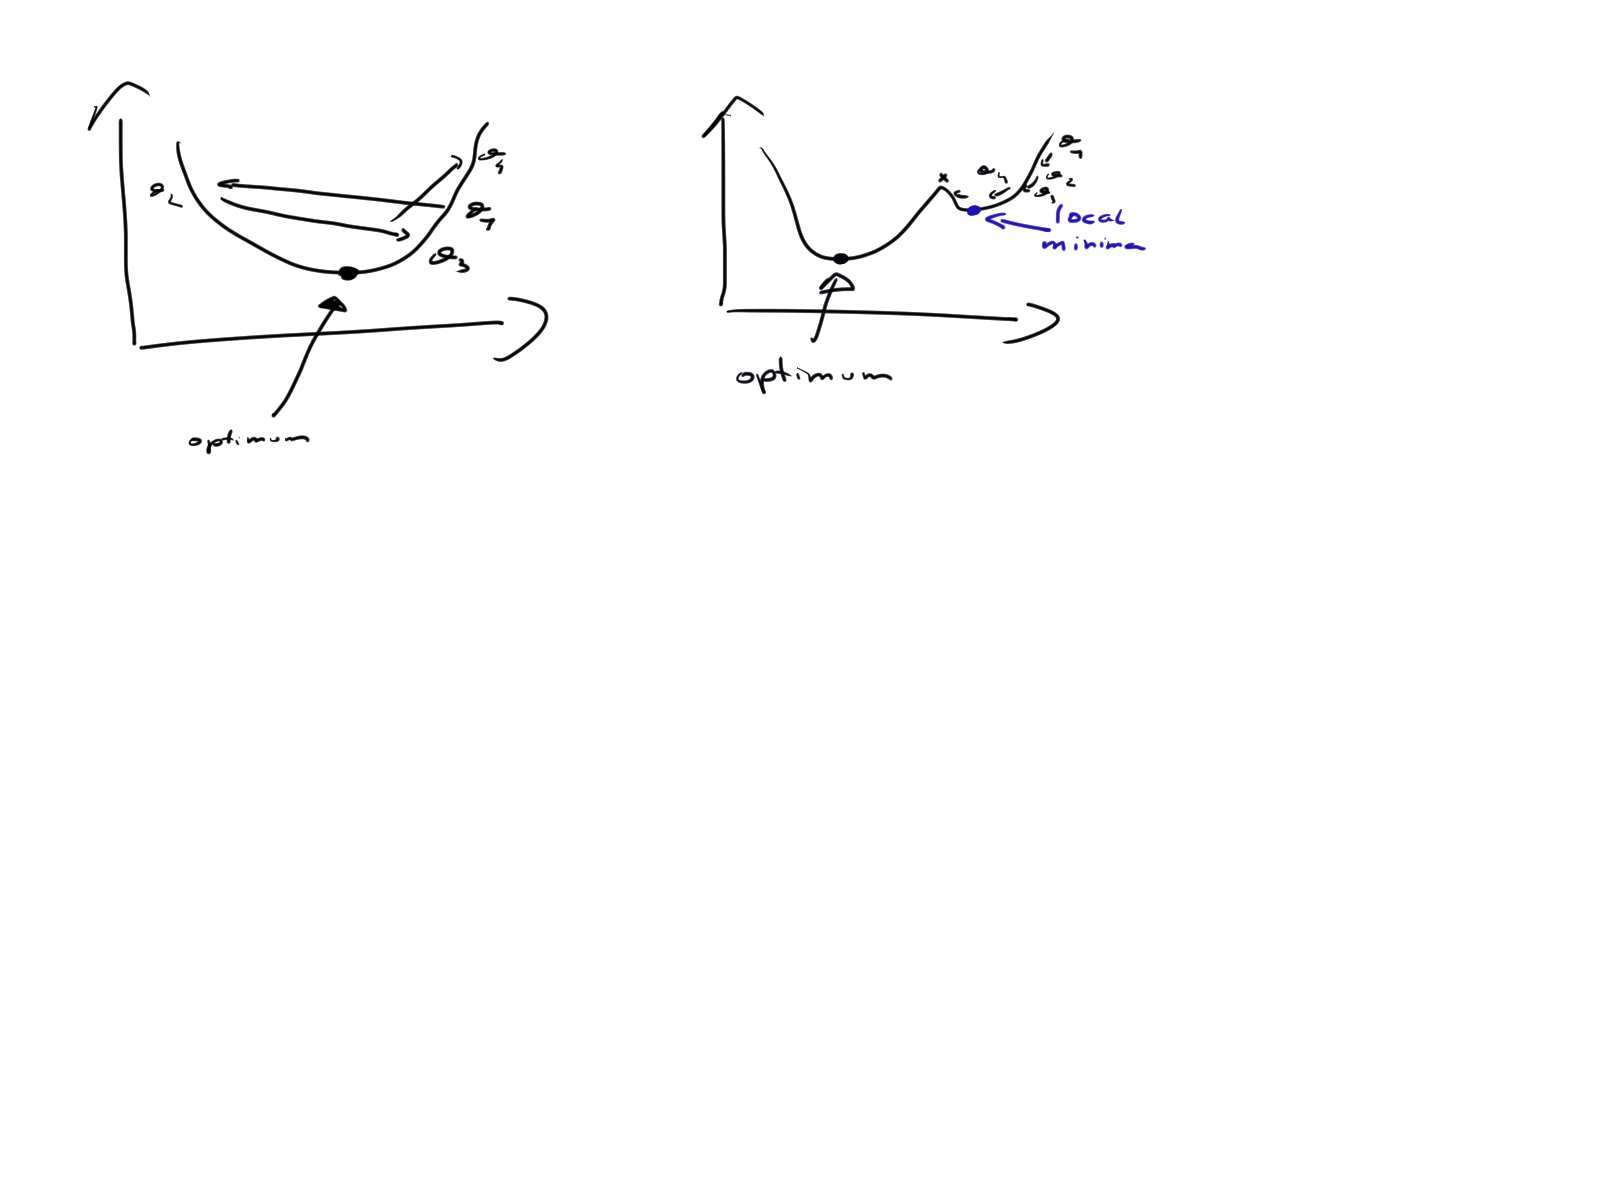 θ₂
θ₄
θ₁
θ₃
optimum
x
θ₁
θ₂
θ₃
θ₄
local
minima
optimum